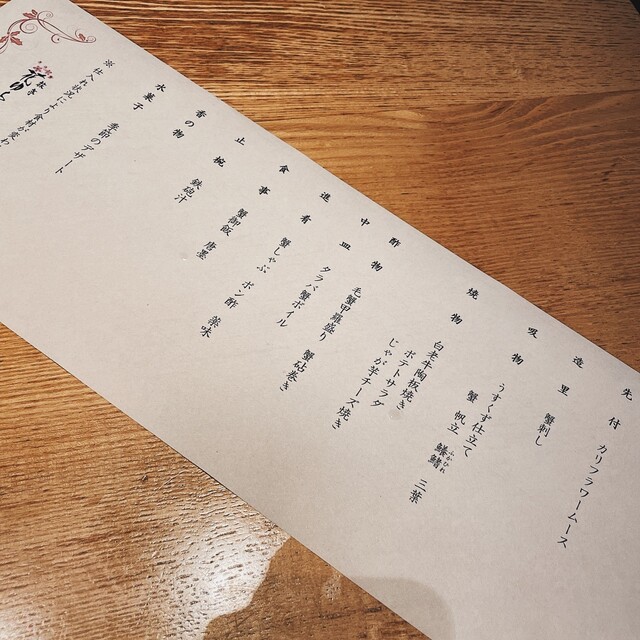 先付 カリフラワームース
造里 蟹刺し
吸物 うすくず仕立て
蟹 帆立 鱶鰭 三葉
ふかひれ
焼物 白老牛陶板焼き
ポテトサラダ
じゃが芋チーズ焼き
酢物 毛蟹甲羅盛り
中皿 タラバ蟹ボイル 蟹砧巻き
進肴 蟹しゃぶ ポン酢 薬味
食事 蟹御飯 唐墨
止椀 鉄砲汁
香の物
水菓子 季節のデザート
※仕入れ状況により食材が変わ
花ゆら